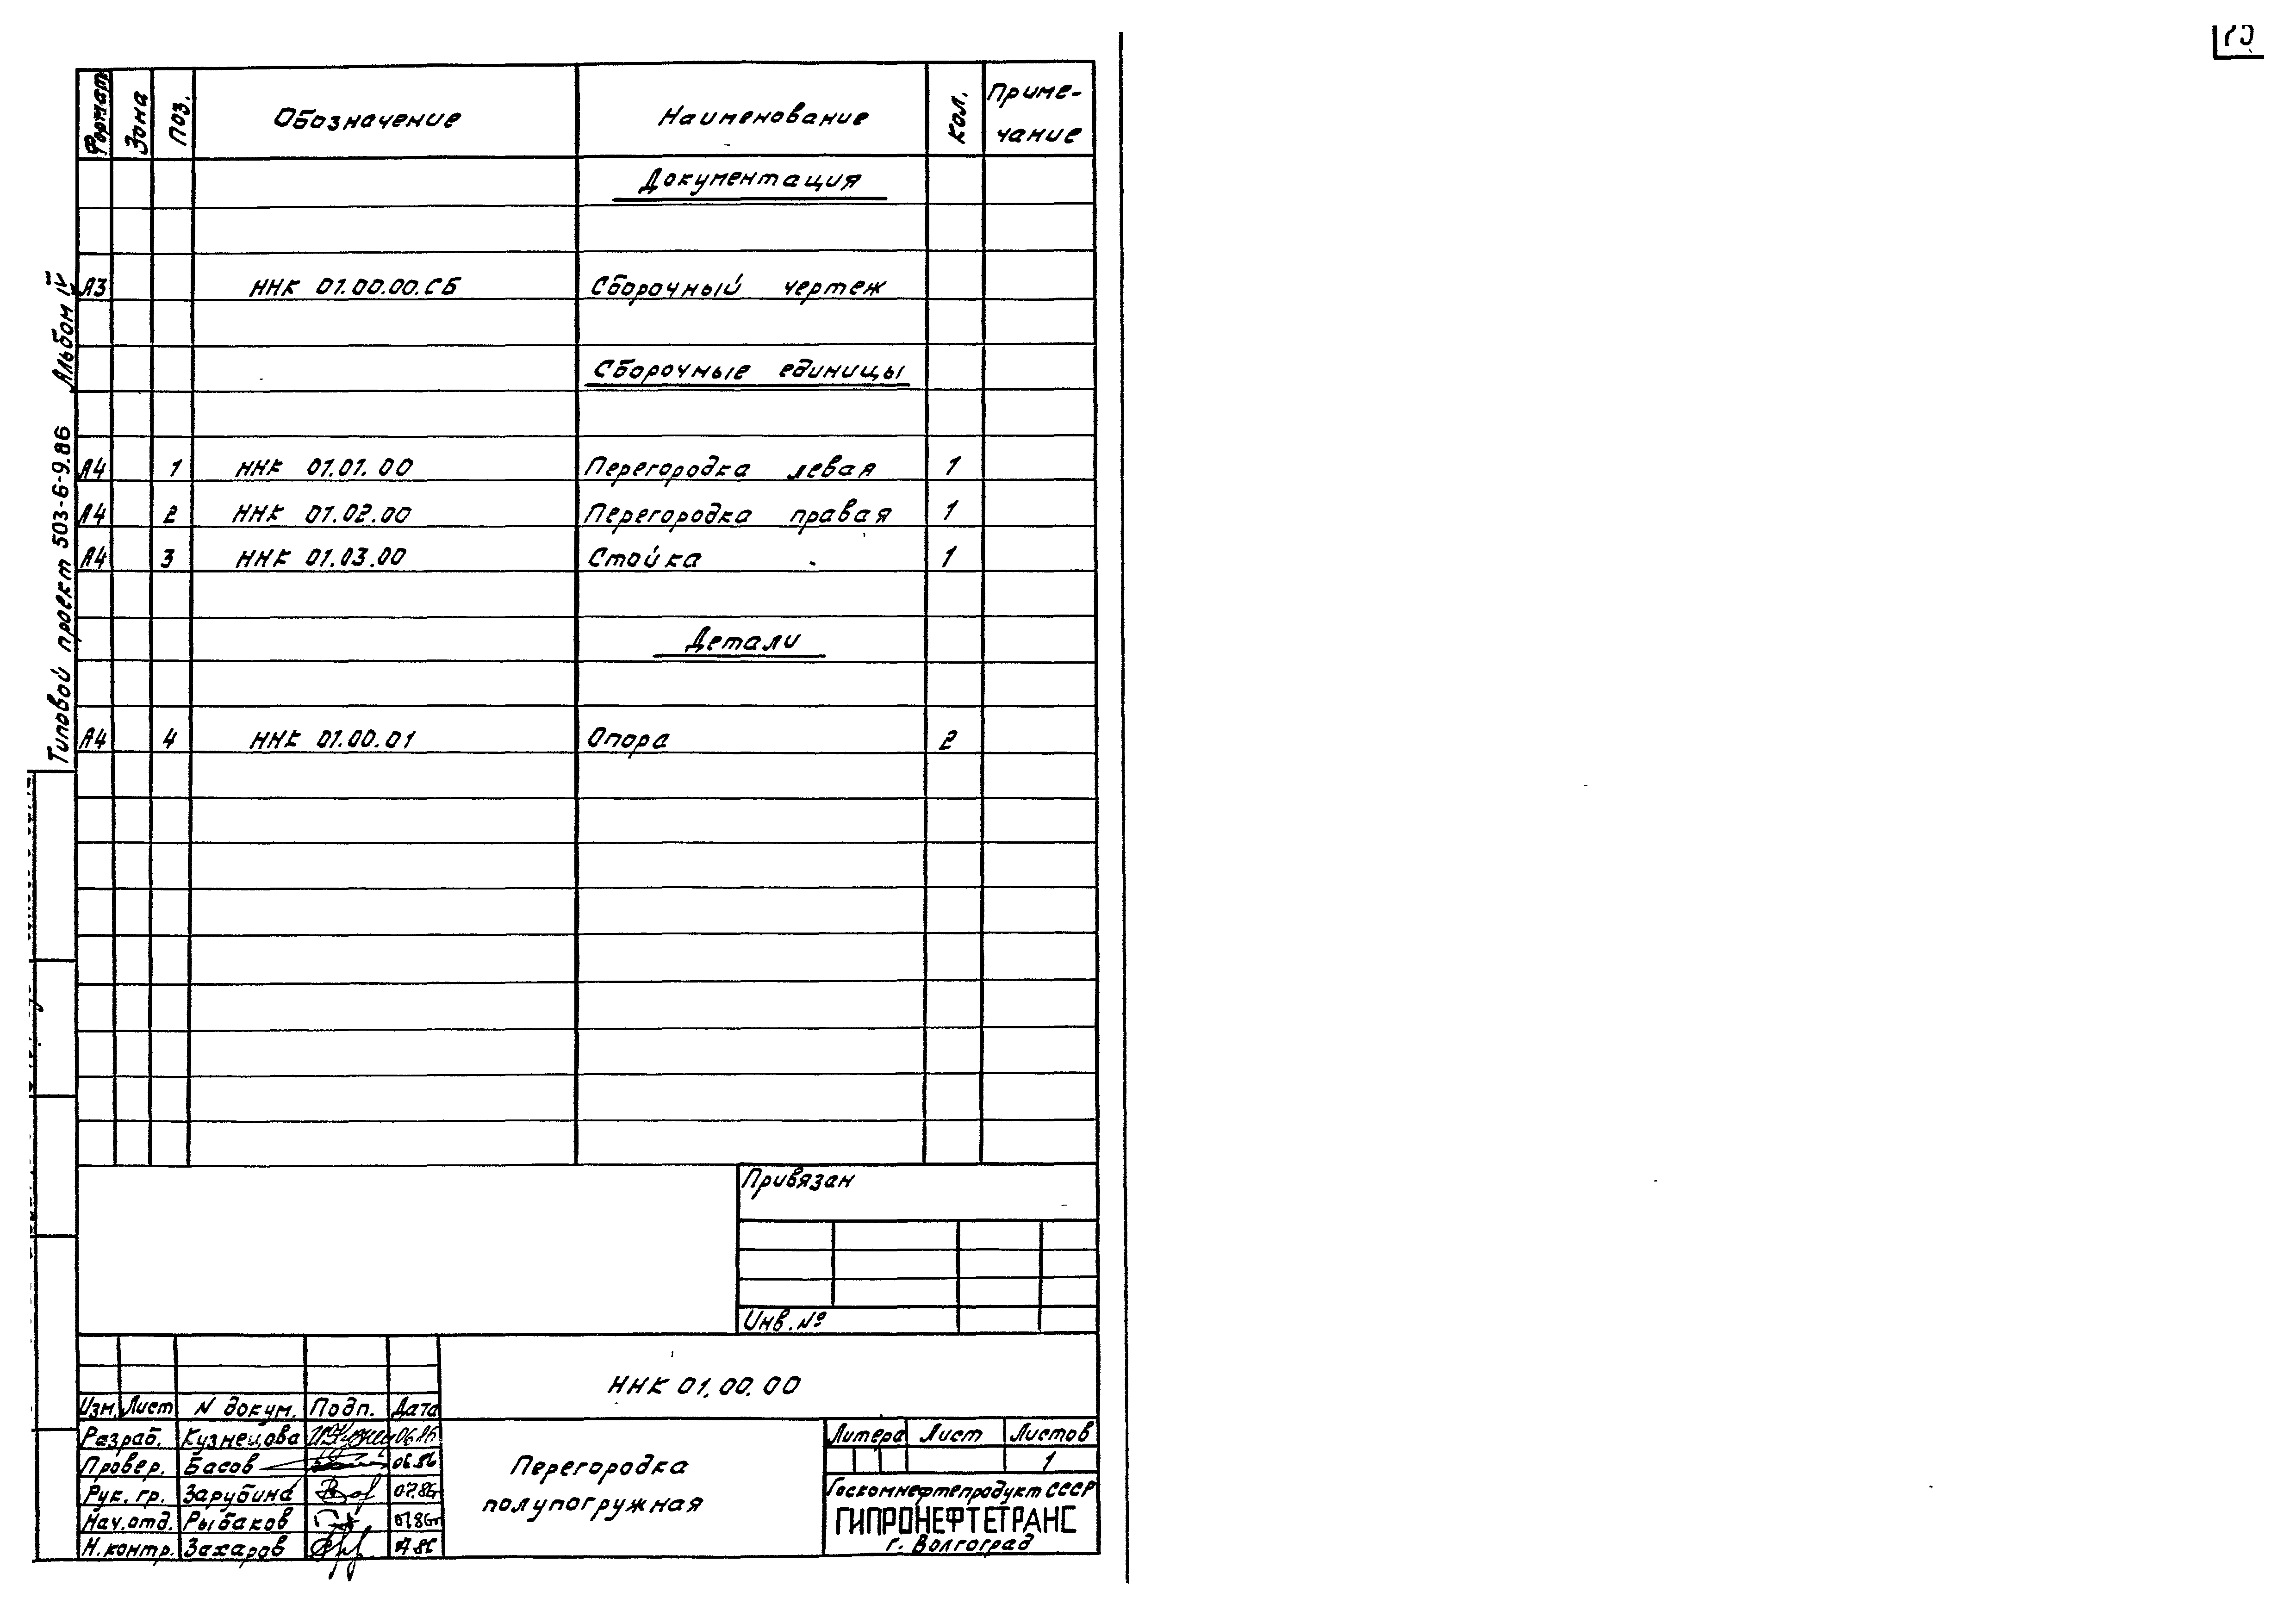 Формат Зона Поз. Обозначение Наименование Кол. Приме-
чание
Документация
А3 ННК 01.00.00.СБ Сборочный чертеж
Сборочные единицы
А4 1 ННК 01.01.00 Перегородка левая 1
А4 2 ННК 01.02.00 Перегородка правая 1
А4 3 ННК 01.03.00 Стойка 1
Детали
А4 4 ННК 01.00.01 Опора 2
Типовой проект 503-6-9.86 Альбом IV
Привязан
Инв. №
ННК 01.00.00
Изм. Лист N докум. Подп. Дата
Разраб. Кузнецова 06.86
Провер. Басов 06.86
Рук. гр. Зарубина 07.86
Нач. отд. Рыбаков 07.86
Н. контр. Захаров
Перегородка
полупогружная
Литера Лист Листов
1
Госкомнефтепродукт СССР
ГИПРОНЕФТЕТРАНС
г. Волгоград